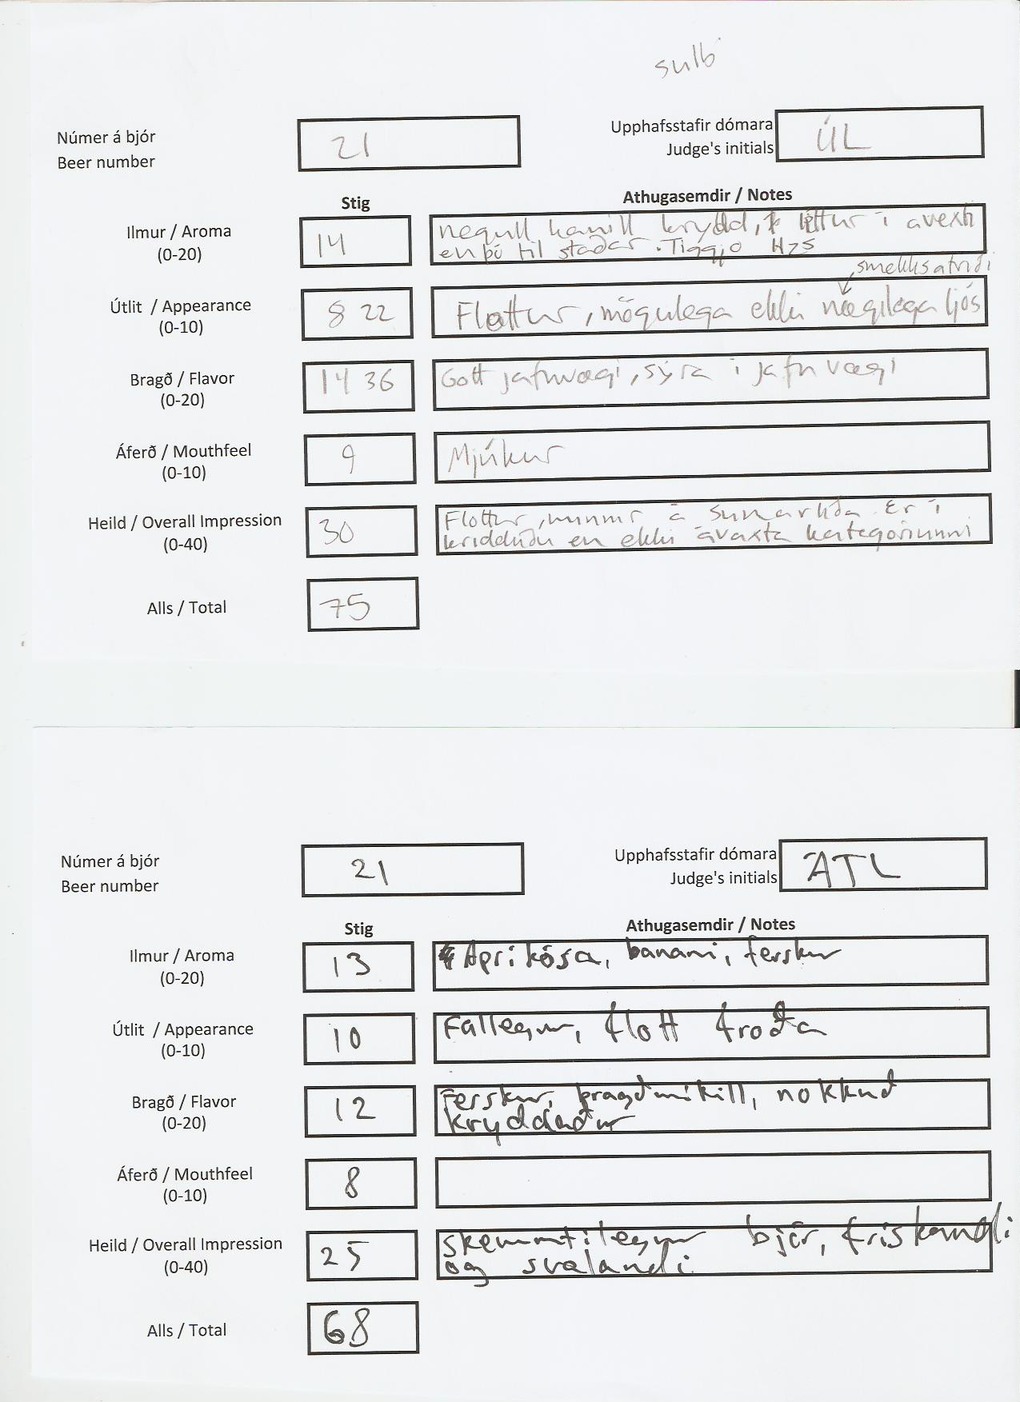 sulb
Númer á bjór
Beer number
21
Upphafsstafir dómara
Judge's initials
ÚL
Stig
Athugasemdir / Notes
Ilmur / Aroma
(0-20)
14
negull kanill krydd, léttur í ávexti
en þó til staðar. Tiggjó H25
smekksatriði
Útlit / Appearance
(0-10)
8 22
Flottur, mögulega ekki nægilega ljós
Bragð / Flavor
(0-20)
14 36
Gott jafnvægi, sýra í jafnvægi
Áferð / Mouthfeel
(0-10)
9
Mjúkur
Heild / Overall Impression
(0-40)
30
Flottur, minnir á Er í
en ekki ávaxta kategóríunni
Alls / Total
75
Númer á bjór
Beer number
21
Upphafsstafir dómara
Judge's initials
ATL
Stig
Athugasemdir / Notes
Ilmur / Aroma
(0-20)
13
Apríkósa, banani, ferskur
Útlit / Appearance
(0-10)
10
Fallegur, flott froða
Bragð / Flavor
(0-20)
12
Ferskur, bragðmikill, nokkuð
kryddaður
Áferð / Mouthfeel
(0-10)
8
Heild / Overall Impression
(0-40)
25
Skemmtilegur bjór, frískandi
og svalandi
Alls / Total
68